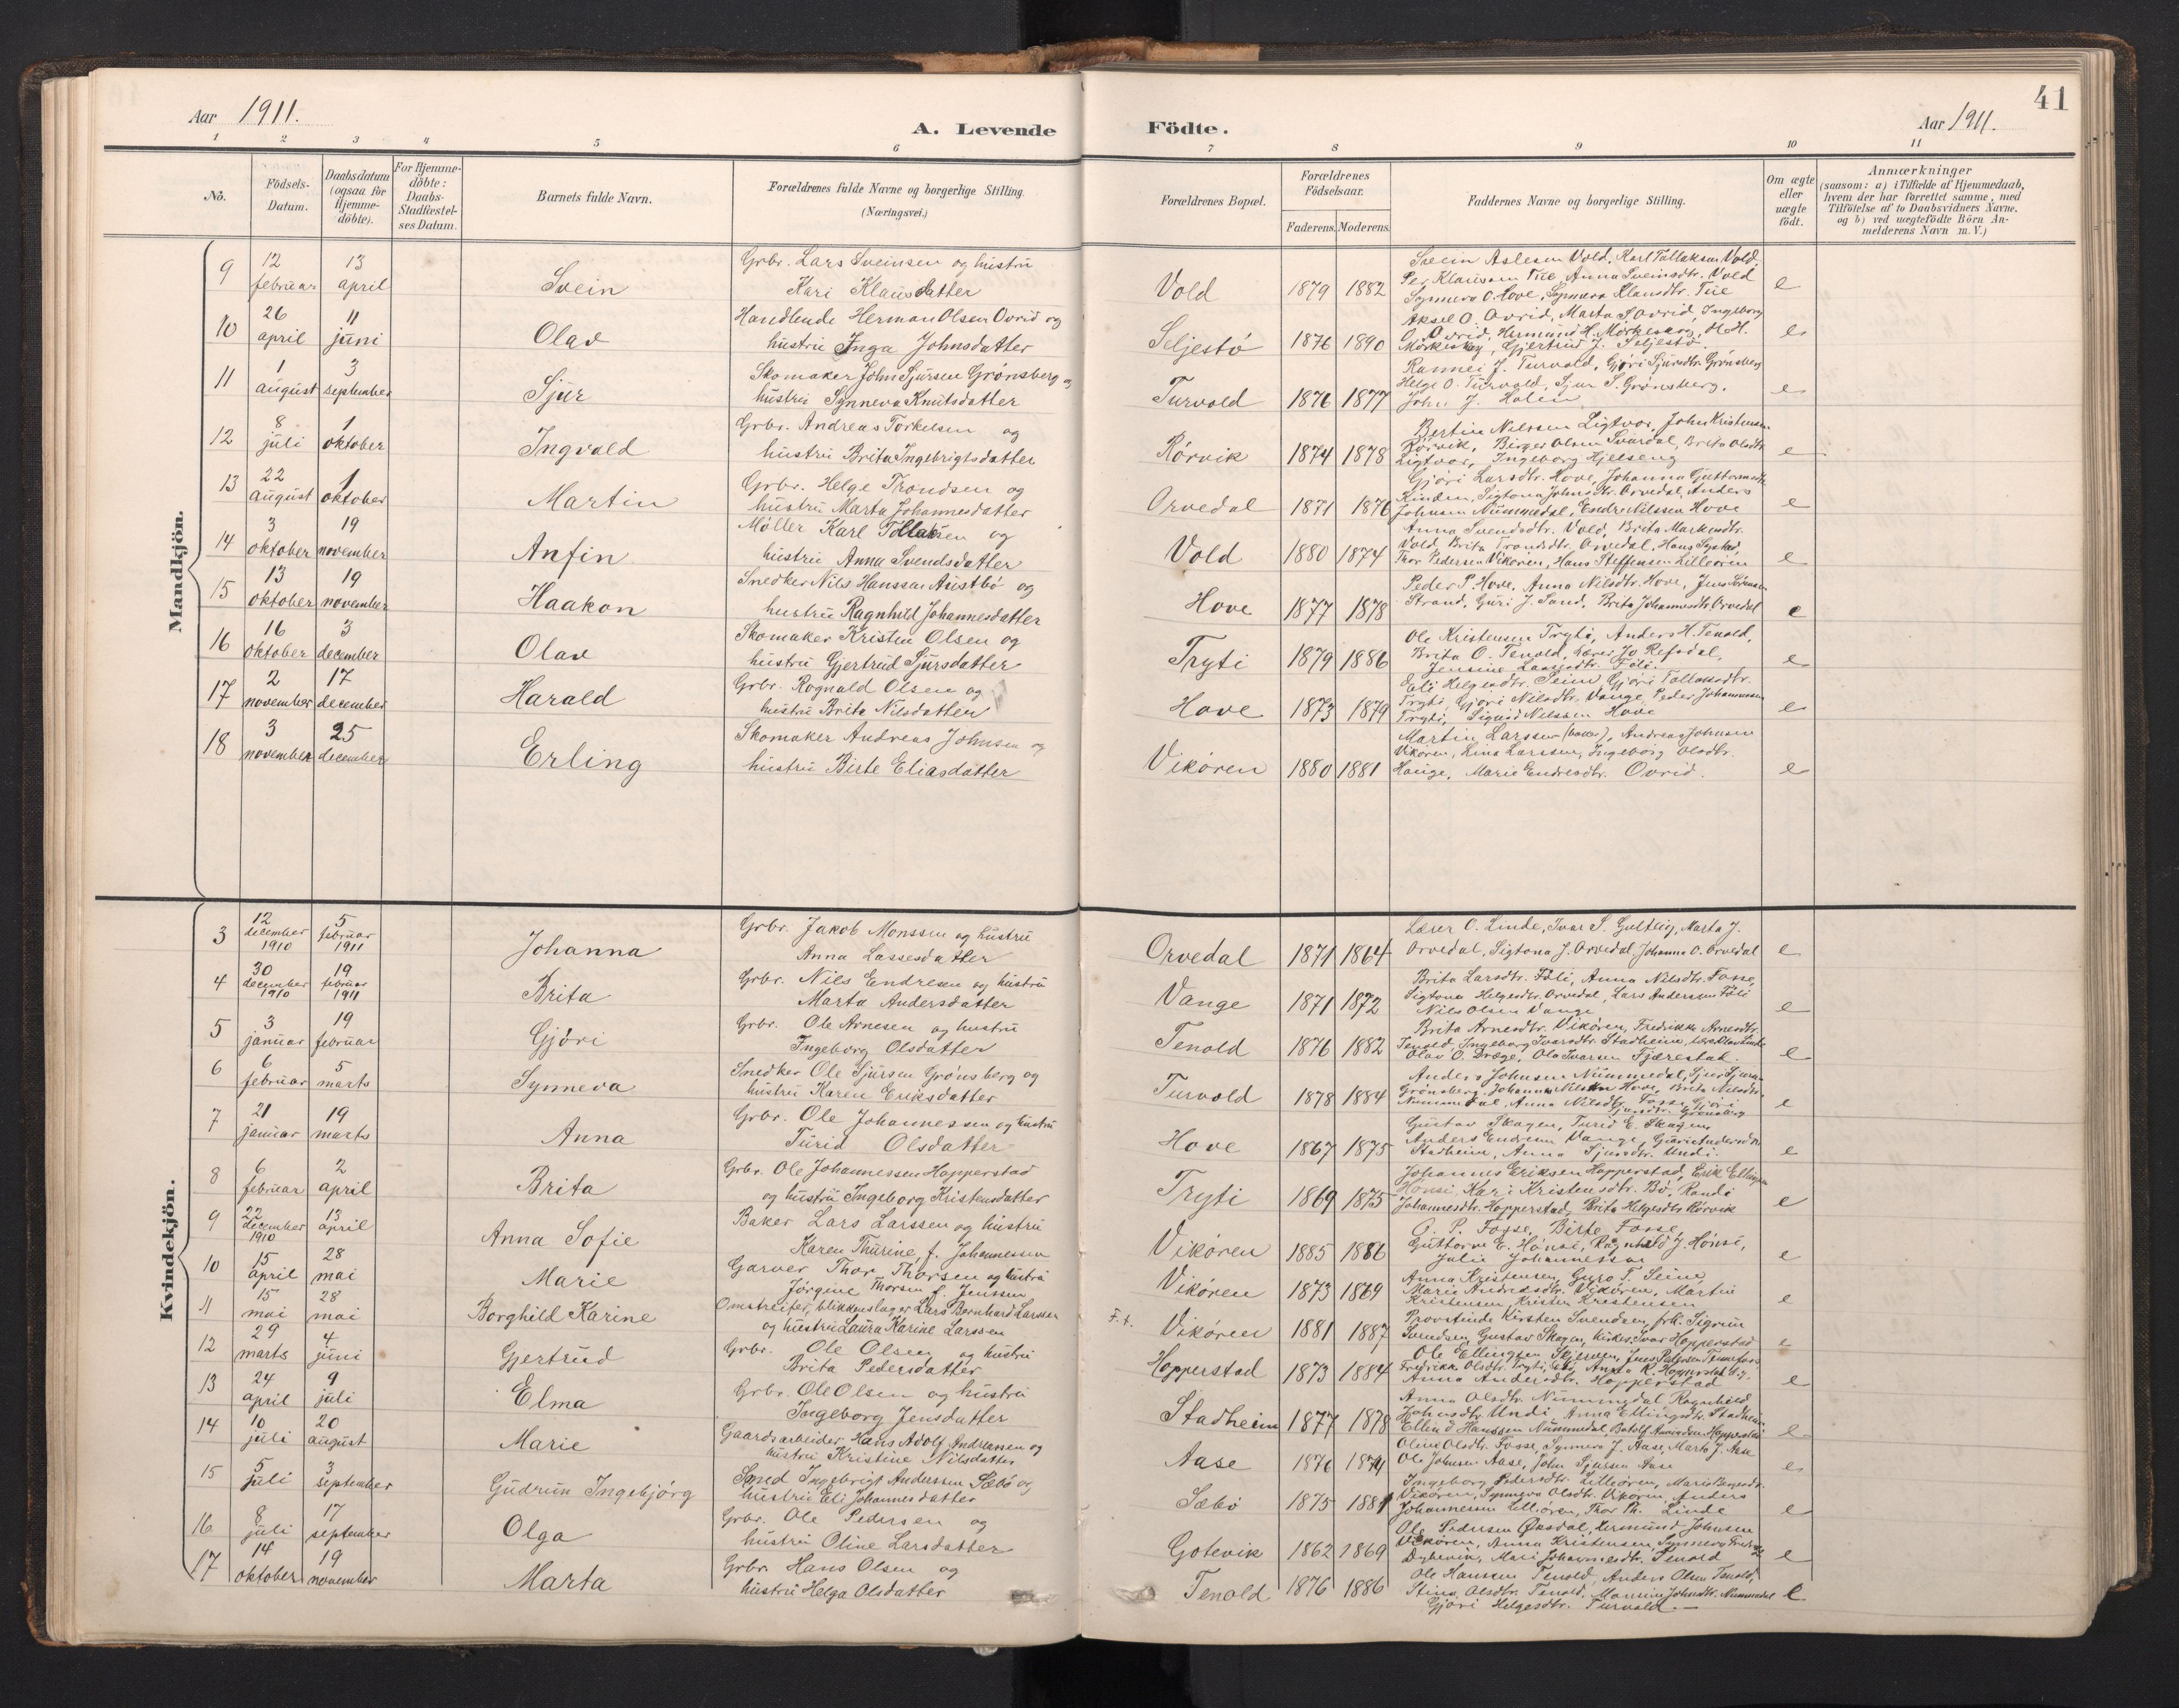 41
Aar 1911.
A. Levende Födte.
Aar 1911.
1 2 3 4 5 6 7 8 9 10 11
No.
Födsels-Datum.
Daabsdatum (ogsaa for Hjemme-döbte).
For Hjemme-döbte: Daabs-Stadfæstel-ses Datum.
Barnets fulde Navn.
Forældrenes fulde Navne og borgerlige Stilling.
(Næringsvei.)
Forældrenes Bopæl.
Forældrenes Födselsaar.
Faderens. Moderens.
Faddernes Navne og borgerlige Stilling.
Om ægte eller uægte födt.
Anmærkninger
(saasom: a) i Tilfælde af Hjemmedaab,
hvem der har forrettet samme, med
Tilföielse af to Daabsvidners Navne.
og b) ved uægtefödte Börn An-
melderens Navn m. V.)
Mandkjön.
9 12 februar 13 april Svein Grbr. Lars Sveinsen og hustru
Kari Klausdatter Vold 1879 1882 Svein Aslesen Vold, Karl Tollaksen Vold,
Per Klausen Tue, Anna Sveinsdtr. Vold
Synneva O. Hove, Synneva Klausdtr. Tue e
10 26 april 11 juni Olav Handlende Herman Olsen Ovrid og
hustru Inga Johnsdatter Seljestö 1876 1890 Aksel O. Ovrid, Marta S. Ovrid, Ingeborg
O. Ovrid, Hermund H. Mörkeseng, H. H.
Mörkeseng, Gjertrud J. Seljestö. e
11 1 august 3 september Sjur Skomaker John Sjursen Grønsberg og
hustru Synneva Knutsdatter Turvold 1876 1877 Rannei J. Turvold, Gjöri Sjursdtr. Grönsberg
Helge O. Turvold, Sjur S. Grønsberg,
John J. Holen e
12 8 juli 1 oktober Ingvald Grbr. Andreas Torkelsen og
hustru Brita Ingebrigtsdatter Rørvik 1874 1878 Bertin Nilssen Ligtvor, John Kristensen
Rørvik, Birger Olsen Svardal, Brita Olsdtr.
Ligtvor, Ingeborg Hjelseng e
13 22 august 1 oktober Martin Grbr. Helge Trondsen og
hustru Marta Johannesdatter Orvedal 1871 1876 Gjöri Larsdtr. Hove, Johanna Guttormsdtr.
Kinden, Sigtona Johnsdtr. Orvedal, Anders
Johnsen Nummedal, Endre Nilssen Hove e
14 3 oktober 19 november Anfin Møller Karl Tollaksen og
hustru Anna Svendsdatter Vold 1880 1874 Anna Svendsdtr. Vold, Brita Markusdtr.
Vold, Brita Trondsdtr. Orvedal, Hans
Thor Pedersen Vikören, Hans Steffensen Lilleören e
15 13 oktober 19 november Haakon Snedker Nils Hanssen Austbø og
hustru Ragnhild Johannesdatter Hove 1877 1878 Peder P. Hove, Anna Nilsdtr. Hove, Jens
Strand, Guri J. Sand, Brita Johannesdtr. Orvedal e
16 16 oktober 3 december Olav Skomaker Kristen Olsen og
hustru Gjertrud Sjursdatter Tryti 1879 1886 Ole Kristensen Tryti, Anders H. Tenold,
Brita O. Tenold, Lærer Jo Refsdal,
Jensine Lassesdtr. Föli. e
17 2 november 17 december Harald Grbr. Rognald Olsen og
hustru Brita Nilsdatter Hove 1873 1879 Eli Helgesdtr. Seim, Gjöri Tollaksdtr.
Tryti, Gjöri Nilsdtr. Vange, Peder Johannessen
Tryti, Sigurd Nilssen Hove e
18 3 november 25 december Erling Skomaker Andreas Johnsen og
hustru Birte Eliasdatter Vikøren 1880 1881 Martin Larssen (baker), Andreas Johnsen
Vikøren, Lina Larssen, Ingeborg Olsdtr.
Hauge, Marie Endresdtr. Ovrid. e
Kvindekjön.
3 12 december 1910 5 februar 1911 Johanna Grbr. Jakob Monssen og hustru
Anna Lassesdatter Orvedal 1871 1864 Lærer O. Linde, Ivar S. Gulteig, Marta J.
Orvedal, Sigtona J. Orvedal, Johanna O. Orvedal e
4 30 december 1910 19 februar 1911 Brita Grbr. Nils Endresen og hustru
Marta Andersdatter Vange 1871 1872 Brita Larsdtr. Föli, Anna Nilsdtr. Fosse,
Sigtona Helgesdtr. Orvedal, Lars Anderssen Föli
Nils Olsen Vange e
5 3 januar 19 februar Gjöri Grbr. Ole Arnesen og hustru
Ingeborg Olsdatter Tenold 1876 1882 Brita Arnesdtr. Vikören, Fredrikke Arnesdtr.
Tenold, Ingeborg Ivarsdtr. Stadheim,
Olav O. Dræge, Ola Ivarsen Fjærestad. e
6 6 februar 5 marts Synneva Snedker Ole Sjursen Grønsberg og
hustru Karen Eriksdatter Turvold 1878 1884 Anders Johnsen Nummedal, Sjur Sjursen
Grønsberg, Johanna Nilsen Hove, Brita Nilsdtr.
Nummedal, Anna Nilsdtr. Fosse, Gjöri
Sjursdtr. Grönsberg e
7 21 januar 19 marts Anna Grbr. Ole Johannessen og hustru
Turid Olsdatter Hove 1867 1875 Gustav Skagen, Turid E. Skagen,
Anders Endresen Vange, Andersdtr.
Stadheim, Anna Sjursdtr. Undi. e
8 6 februar 2 april Brita Grbr. Ole Johannessen Hopperstad
og hustru Ingeborg Kristensdatter Tryti 1869 1875 Johannes Eriksen Hopperstad, Erik Ellingsen
Hönsi, Kari Kristensdtr. Bö, Randi
Johannesdtr. Hopperstad, Brita Helgesdtr. Rörvik e
9 22 december 1910 13 april Anna Sofie Baker Lars Larssen og hustru
Karen Thurine f. Johannesen Vikøren 1885 1886 O. P. Fosse, Birte Fosse,
Guttorm E. Hönsi, Ragnhild J. Hönsi,
Julie Johannessen e
10 15 april 28 mai Marie Garver Thor Thorsen og hustru
Jörgine Thorsen f. Jenssen Vikøren 1873 1869 Anna Kristensen, Guro T. Seim,
Marie Andresdtr. Vikøren, Martin
Kristensen, Kristen Kristensen e
11 15 mai 28 mai Borghild Karine Omstreifer, blikkenslager Lars Bernhard Larssen
og hustru Laura Karine Larssen F. t. Vikøren 1881 1887 Provstinde Kirsten Svendsen, frk. Sigrun
Svendsen, Gustav Skagen, Ivar Hopperstad e
12 29 marts 4 juni Gjertrud Grbr. Ole Olsen og hustru
Brita Pedersdatter Hopperstad 1873 1884 Ole Ellingsen Skjerven, Jens Pedersen
Fredrikke Olsdtr. Tryti, Anna K. Hopperstad
Anna Andersdtr. Hopperstad e
13 24 april 9 juli Elma Grbr. Ole Olsen og hustru
Ingeborg Jensdatter Stadheim 1877 1878 Anna Olsdtr. Nummedal, Ragnhild
Johnsdtr. Undi, Anna Ellingsdtr. Stadheim
Elling Hanssen Nummedal, Botolf Hopperstad e
14 10 juli 20 august Marie Gaardsarbeider Hans Adolf Andreasen og
hustru Kristine Nilsdatter Aase 1876 1874 Oline Olsdtr. Fosse, Synneva J. Aase, Marta J. Aase
Ole Johnsen Aase, John Sjursen Aase e
15 5 juli 3 september Gudrun Ingebjörg Smed Ingebrigt Anderssen Sæbö og
hustru Eli Johannesdatter Sæbö 1875 1881 Ingeborg Pedersdtr. Lilleören, Marie
Vikøren, Synneva Olsdtr. Vikören, Anders
Johannessen Lilleören, Thor Th. Linde e
16 8 juli 17 september Olga Grbr. Ole Pedersen og
hustru Oline Larsdatter Gotevik 1862 1869 Ole Pedersen Øksdal, Hermund Johnsen
Vikøren, Anna Kristensen, Synneva
Dybevik, Mari Johannesdtr. Tenold e
17 14 oktober 19 november Marta Grbr. Hans Olsen og
hustru Helga Olsdatter Tenold 1876 1886 Ole Hanssen Tenold, Anders Olsen Tenold,
Stina Olsdtr. Tenold, Monsine Johnsdtr. Nummedal
Gjöri Helgesdtr. Turvold. e